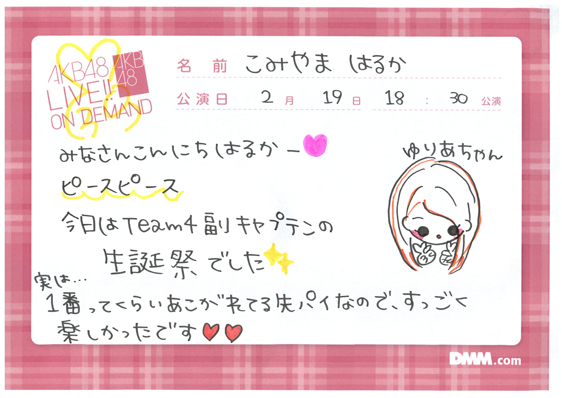 AKB48
LIVE!!
ON DEMAND
AKB
48
名前 こみやま はるか
公演日 2月 19日 18:30 公演
みなさんこんにちはるかー
ピースピース
今日はTeam4副キャプテンの
生誕祭でした
実は…
1番ってくらいあこがれてる先パイなので、すっごく
楽しかったです
ゆりあちゃん
DMM.com